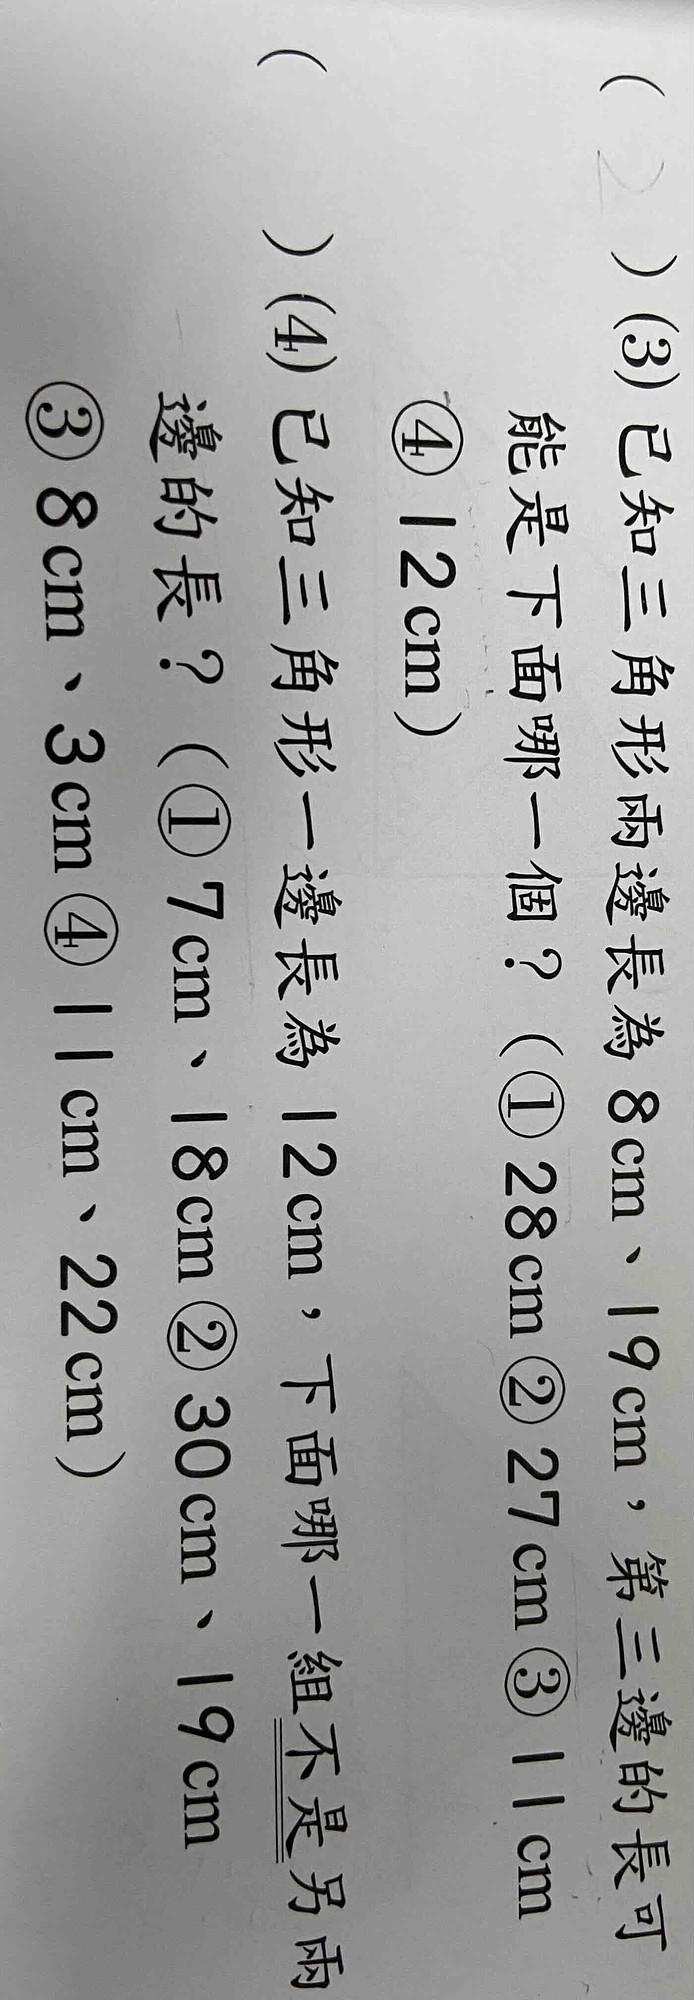 ( 2 ) (3) 已知三角形兩邊長為 8cm、19cm，第三邊的長可
能是下面哪一個？（① 28cm ② 27cm ③ 11cm
④ 12cm）
(   ) (4) 已知三角形一邊長為 12cm，下面哪一組不是另兩
邊的長？（① 7cm、18cm ② 30cm、19cm
③ 8cm、3cm ④ 11cm、22cm）